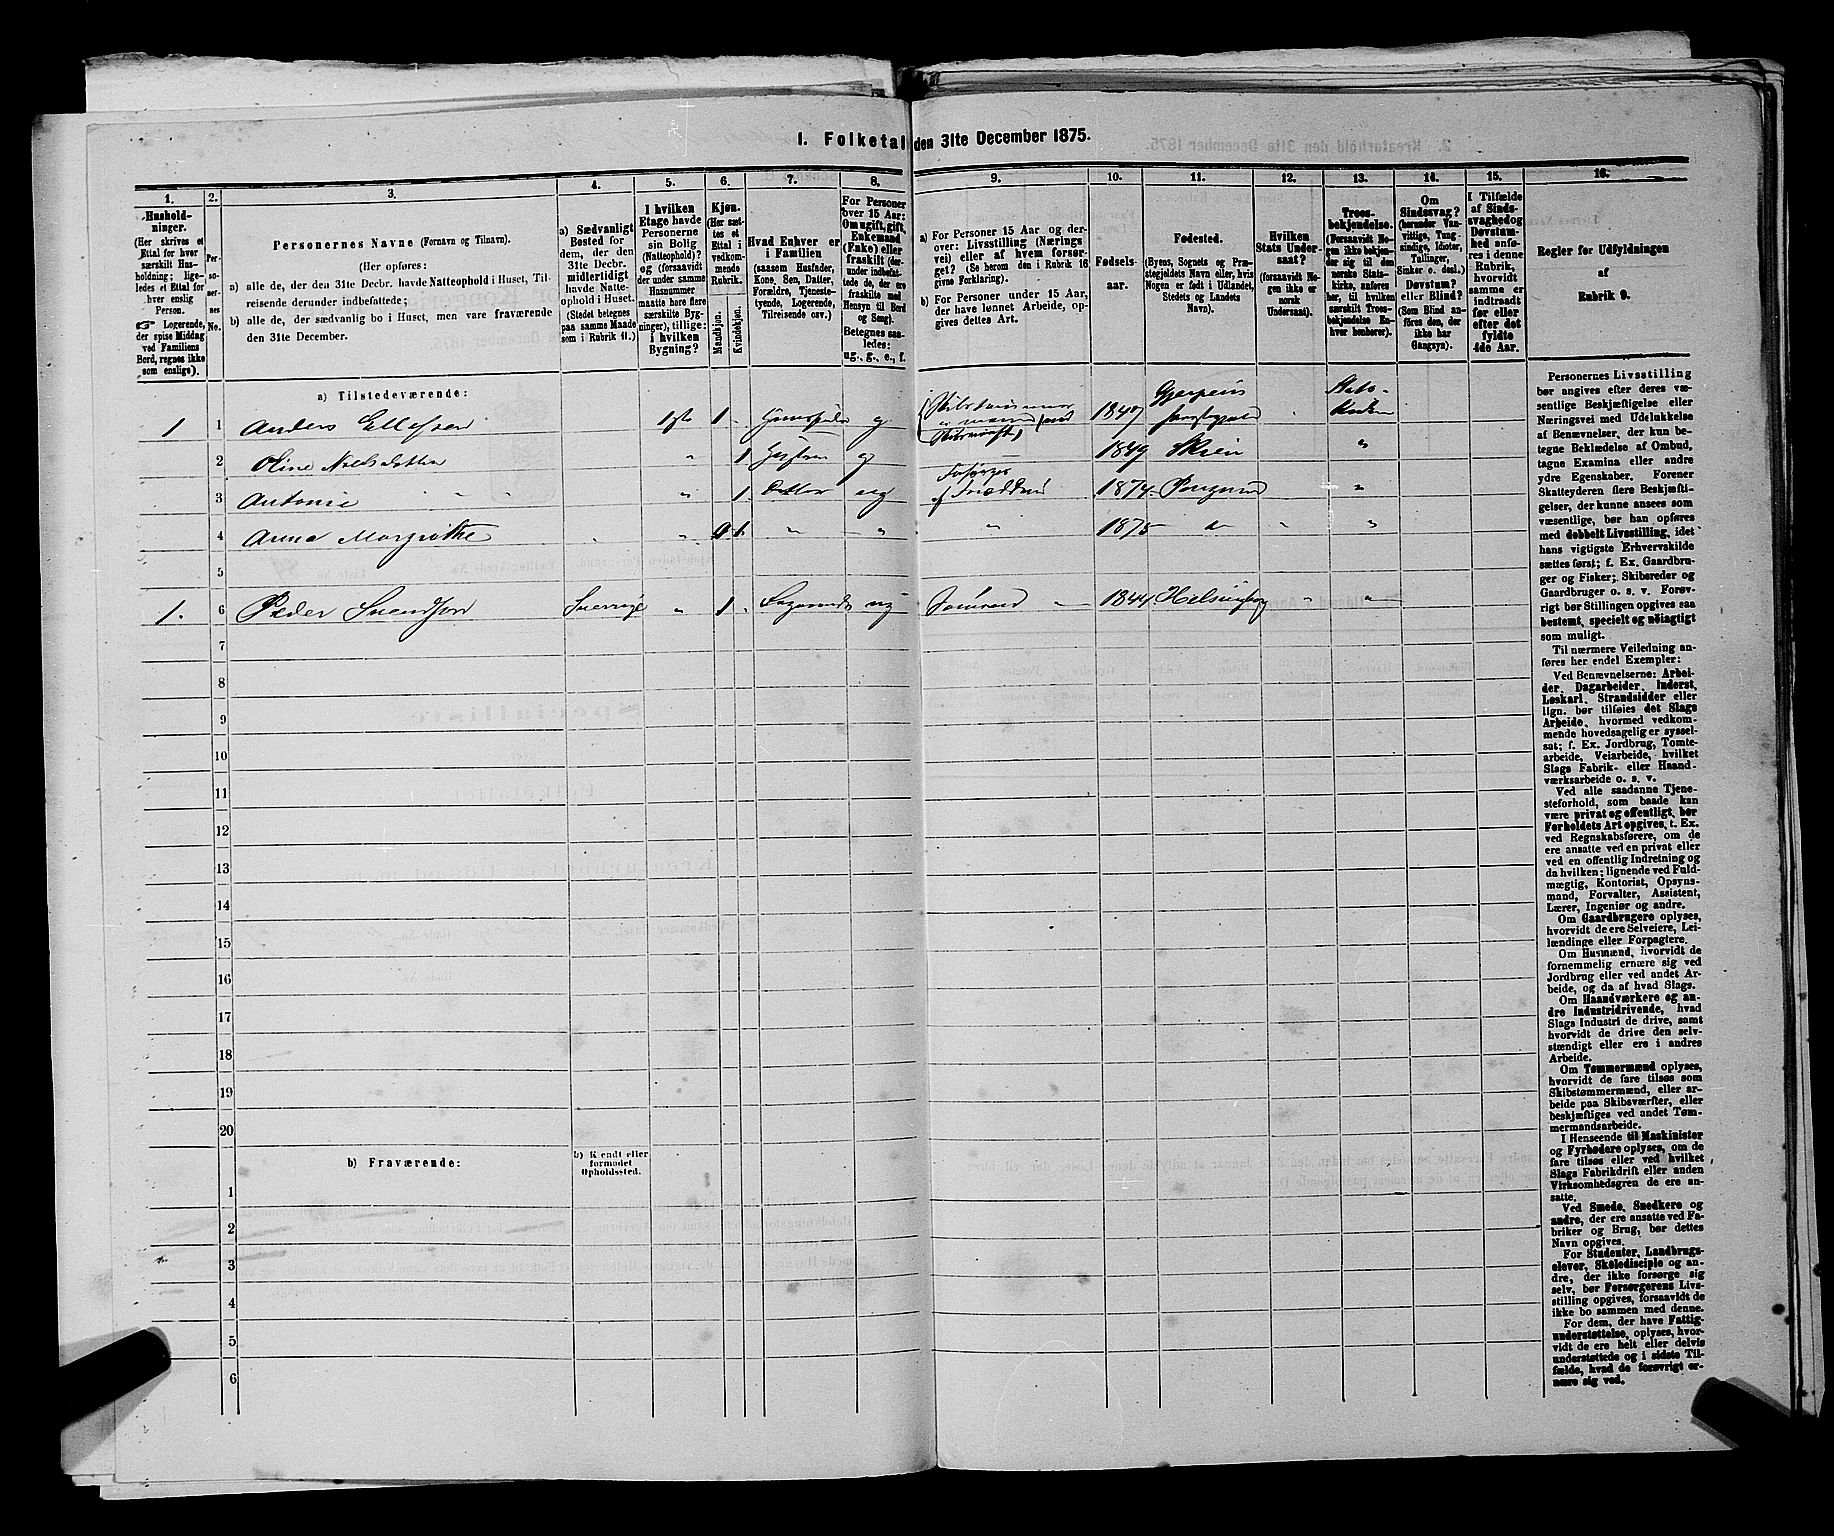 1. Folketal den 31te December 1875.
1.
Hushold-
ninger.
(Her skrives et
Ettal for hver
særskilt Hus-
holdning; lige-
ledes et Ettal for
hver enslig
Person.
☞ Logerende,
der spise Middag
ved Familiens
Bord, regnes ikke
som enslige).
2.
Per-
soner-
nes
No.
3.
Personernes Navne (Fornavn og Tilnavn).
(Her opføres:
a) alle de, der den 31te Decbr. havde Natteophold i Huset, Til-
reisende derunder indbefattede;
b) alle de, der sædvanlig bo i Huset, men vare fraværende
den 31te December.
4.
a) Sædvanligt
Bosted for
dem, der den
31te Decbr.
midlertidigt
havde Natte-
ophold i Huset.
(Stedet betegnes
paa samme Maade
som i Rubrik 11.)
5.
I hvilken
Etage havde
Personerne
sin Bolig
(Natteophold)?
og (forsaavidt
der under samme
Husnummer
maatte høre flere
særskilte Byg-
ninger), tillige:
i hvilken
Bygning?
6.
Kjøn.
(Her sæt-
tes et
Ettal i
vedkom-
mende
Rubrik.
Mandkjøn.
Kvindekjøn.
7.
Hvad Enhver er
i Familien
(saasom Husfader,
Kone, Søn, Datter,
Forældre, Tjeneste-
tyende, Logerende,
Tilreisende osv.).
8.
For Personer
over 15 Aar:
Om ugift, gift,
Enkemand
(Enke) eller
fraskilt (der-
under indbefat-
tede de, der ere
fraskilte med
Hensyn til Bord
og Seng).
Betegnes saa-
ledes:
ug., g., e., f.
9.
a) For Personer 15 Aar og der-
over: Livsstilling (Nærings-
vei) eller af hvem forsør-
get? (Se herom den i Rubrik 16
givne Forklaring).
b) For Personer under 15 Aar,
der have lønnet Arbeide, op-
gives dettes Art.
10.
Fødsels-
aar.
11.
Fødested.
(Byens, Sognets og Præ-
stegjeldets Navn eller, hvis
Nogen er født i Udlandet,
Stedets og Landets
Navn).
12.
Hvilken
Stats Under-
saat?
(forsaavidt No-
gen ikke er
norsk
Undersaat).
13.
Troes-
bekjendelse.
(Forsaavidt No-
gen ikke beken-
der sig til den
norske Stats-
kirke, anføres
her, til hvilken
særskilt Troes-
bekjendelse En-
hver henhører).
14.
Om
Sindssvag?
(herunder Van-
vittige, Tung-
sindige, Idioter,
Sinker o. desl.)
Døvstum?
eller Blind?
(Som Blind an-
føres den, der
ikke har
Gangsyn).
15.
I Tilfælde
af Sinds-
svaghed og
Døvstum-
hed anfø-
res i denne
Rubrik,
hvorvidt
samme er
indtraadt
før eller
efter det
fyldte
4de Aar.
16.
Regler for Udfyldningen
af
Rubrik 9.
a) Tilstedeværende:
1 1 Anders Ellefsen 1ste 1 g 1847 Stats-
Kirken
2 Oline Nielsdatter " 1 g 1849 Skien "
3 Antonie " " " 1 Datter ug 1874 "
4 Anna Margrethe " 1 " " " 1875 "
5
1. 6 Peder Svendsen Sverrige " 1 Logerende ug 1844 Helsingborg " "
7
8
9
10
11
12
13
14
15
16
17
18
19
20
b) Fraværende:
b) Kjendt eller
formodet
Opholdssted.
1
2
3
4
5
6
Personernes Livsstilling
bør angives efter deres væ-
sentlige Beskjæftigelse eller
Næringsvei med Udelukkelse
af Benævnelser, der kun be-
tegne Beklædelse af Ombud,
tagne Examina eller andre
ydre Egenskaber. Forener
Skatteyderen flere Beskjæfti-
gelser, der kunne ansees som
væsentlige, bør han opføres
med dobbelt Livsstilling, idet
hans vigtigste Erhvervskilde
sættes først; f. Ex. Gaardbru-
ger og Fisker; Skibsreder og
Gaardbruger o. s. v. Forøv-
rigt bør Stillingen opgives saa
bestemt, specielt og nøiagtigt
som muligt.
Til nærmere Veiledning an-
føres her endel Exempler:
Ved Benævnelserne: Arbei-
der, Dagarbeider, Inderst,
Løskarl, Strandsidder eller
lign. bør tilføies det Slags
Arbeide, hvormed vedkom-
mende hovedsagelig er syssel-
sat; f. Ex. Jordbrug, Tomte-
arbeide, Veiarbeide, hvilket
Slags Fabrik- eller Haand-
værksarbeide o. s. v.
Ved alle saadanne Tjene-
steforhold, som baade kan
være privat og offentligt, bør
Forholdets Art opgives, t. Ex.
ved Regnskabsførere, om de
ere ansatte ved en privat eller
ved en offentlig Indretning og
da hvilken; lignende ved Fuld-
mægtig, Kontorist, Opsyns-
mand, Forvalter, Assistent,
Lærer, Ingeniør og andre.
Om Gaardbrugere oplyses,
hvorvidt de ere Selveiere, Lei-
lændinge eller Forpagtere.
Om Husmænd, hvorvidt de
fornemmelig ernære sig ved
Jordbrug eller ved andet Ar-
beide, og da af hvad Slags.
Om Haandværkere og an-
dre Industridrivende, hvad
Slags Industri de drive, samt
hvorvidt de drive den selv-
stændigt eller ere i andres
Arbeide.
Om Tømmermænd oplyses,
hvorvidt de fare tilsøs som
Skibstømmermænd, eller ar-
beide paa Skibsværfter, eller
beskjæftiges ved andet Tøm-
mermandsarbeide.
I Henseende til Maskinister
og Fyrbødere oplyses, om de
fare tilsøs eller ved hvilket
Slags Fabrikdrift eller anden
Virksomhedsgren de ere an-
satte.
Ved Smede, Snedkere og
andre, der ere ansatte ved Fa-
briker og Brug, bør dettes
Navn opgives.
For Studenter, Landbrugs-
elever, Skoledisciple og an-
dre, der ikke forsørge sig
selv, bør Forsørgerens Livs-
stilling opgives, forsaavidt de
ikke bo sammen med denne.
For dem, der have Fattig-
understøttelse, oplyses, hvor-
vidt de ere helt eller delvis
understøttede og i sidste Til-
fælde, hvad de forøvrigt er-
nære sig ved.